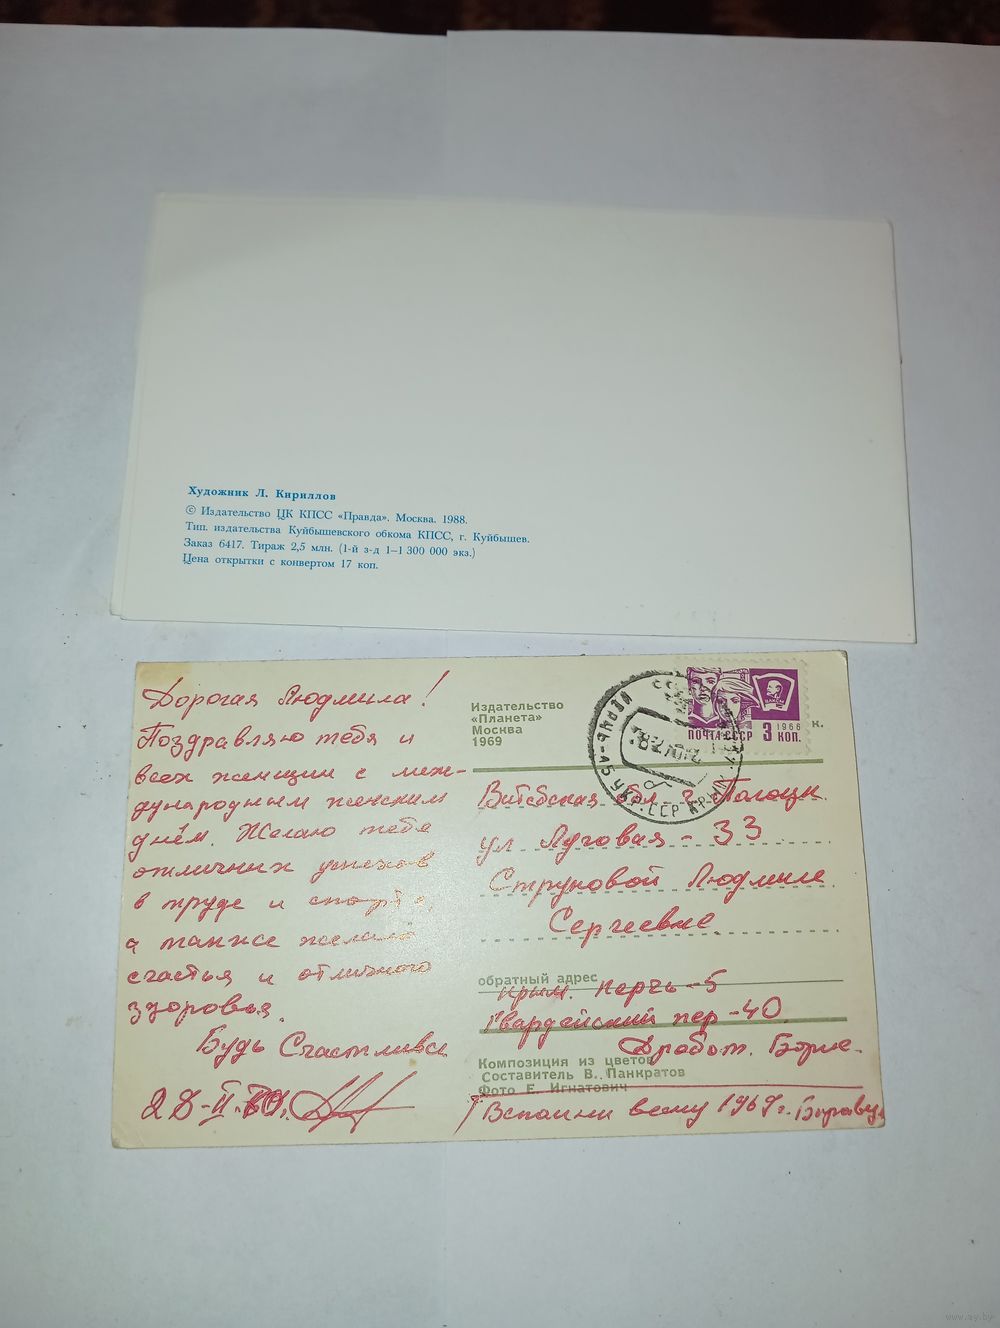 Художник Л. Кириллов
© Издательство ЦК КПСС «Правда». Москва. 1988.
Тип. издательства Куйбышевского обкома КПСС, г. Куйбышев.
Заказ 6417. Тираж 2,5 млн. (1-й з-д 1—1 300 000 экз.)
Цена открытки с конвертом 17 коп.
Дорогая Людмила!
Поздравляю тебя и
всех женщин с меж-
дународным женским
днём. Желаю тебе
отличных успехов
в труде и
а также желаю
счастья и отличного
здоровья.
Будь Счастлива
28-II-
Издательство
«Планета»
Москва
1969
ПОЧТА СССР 3 КОП.
1966
ВЛКСМ
к.
Витебская обл г. Полоцк
ул Луговая - 33
Струковой Людмиле
Сергеевне.
обратный адрес
Крым. Керчь-5
Гвардейский пер-40
Дробот.
Композиция из цветов
Составитель В. Панкратов
Фото Е. Игнатович
Вспомни весну 1969г.
www.ay.by